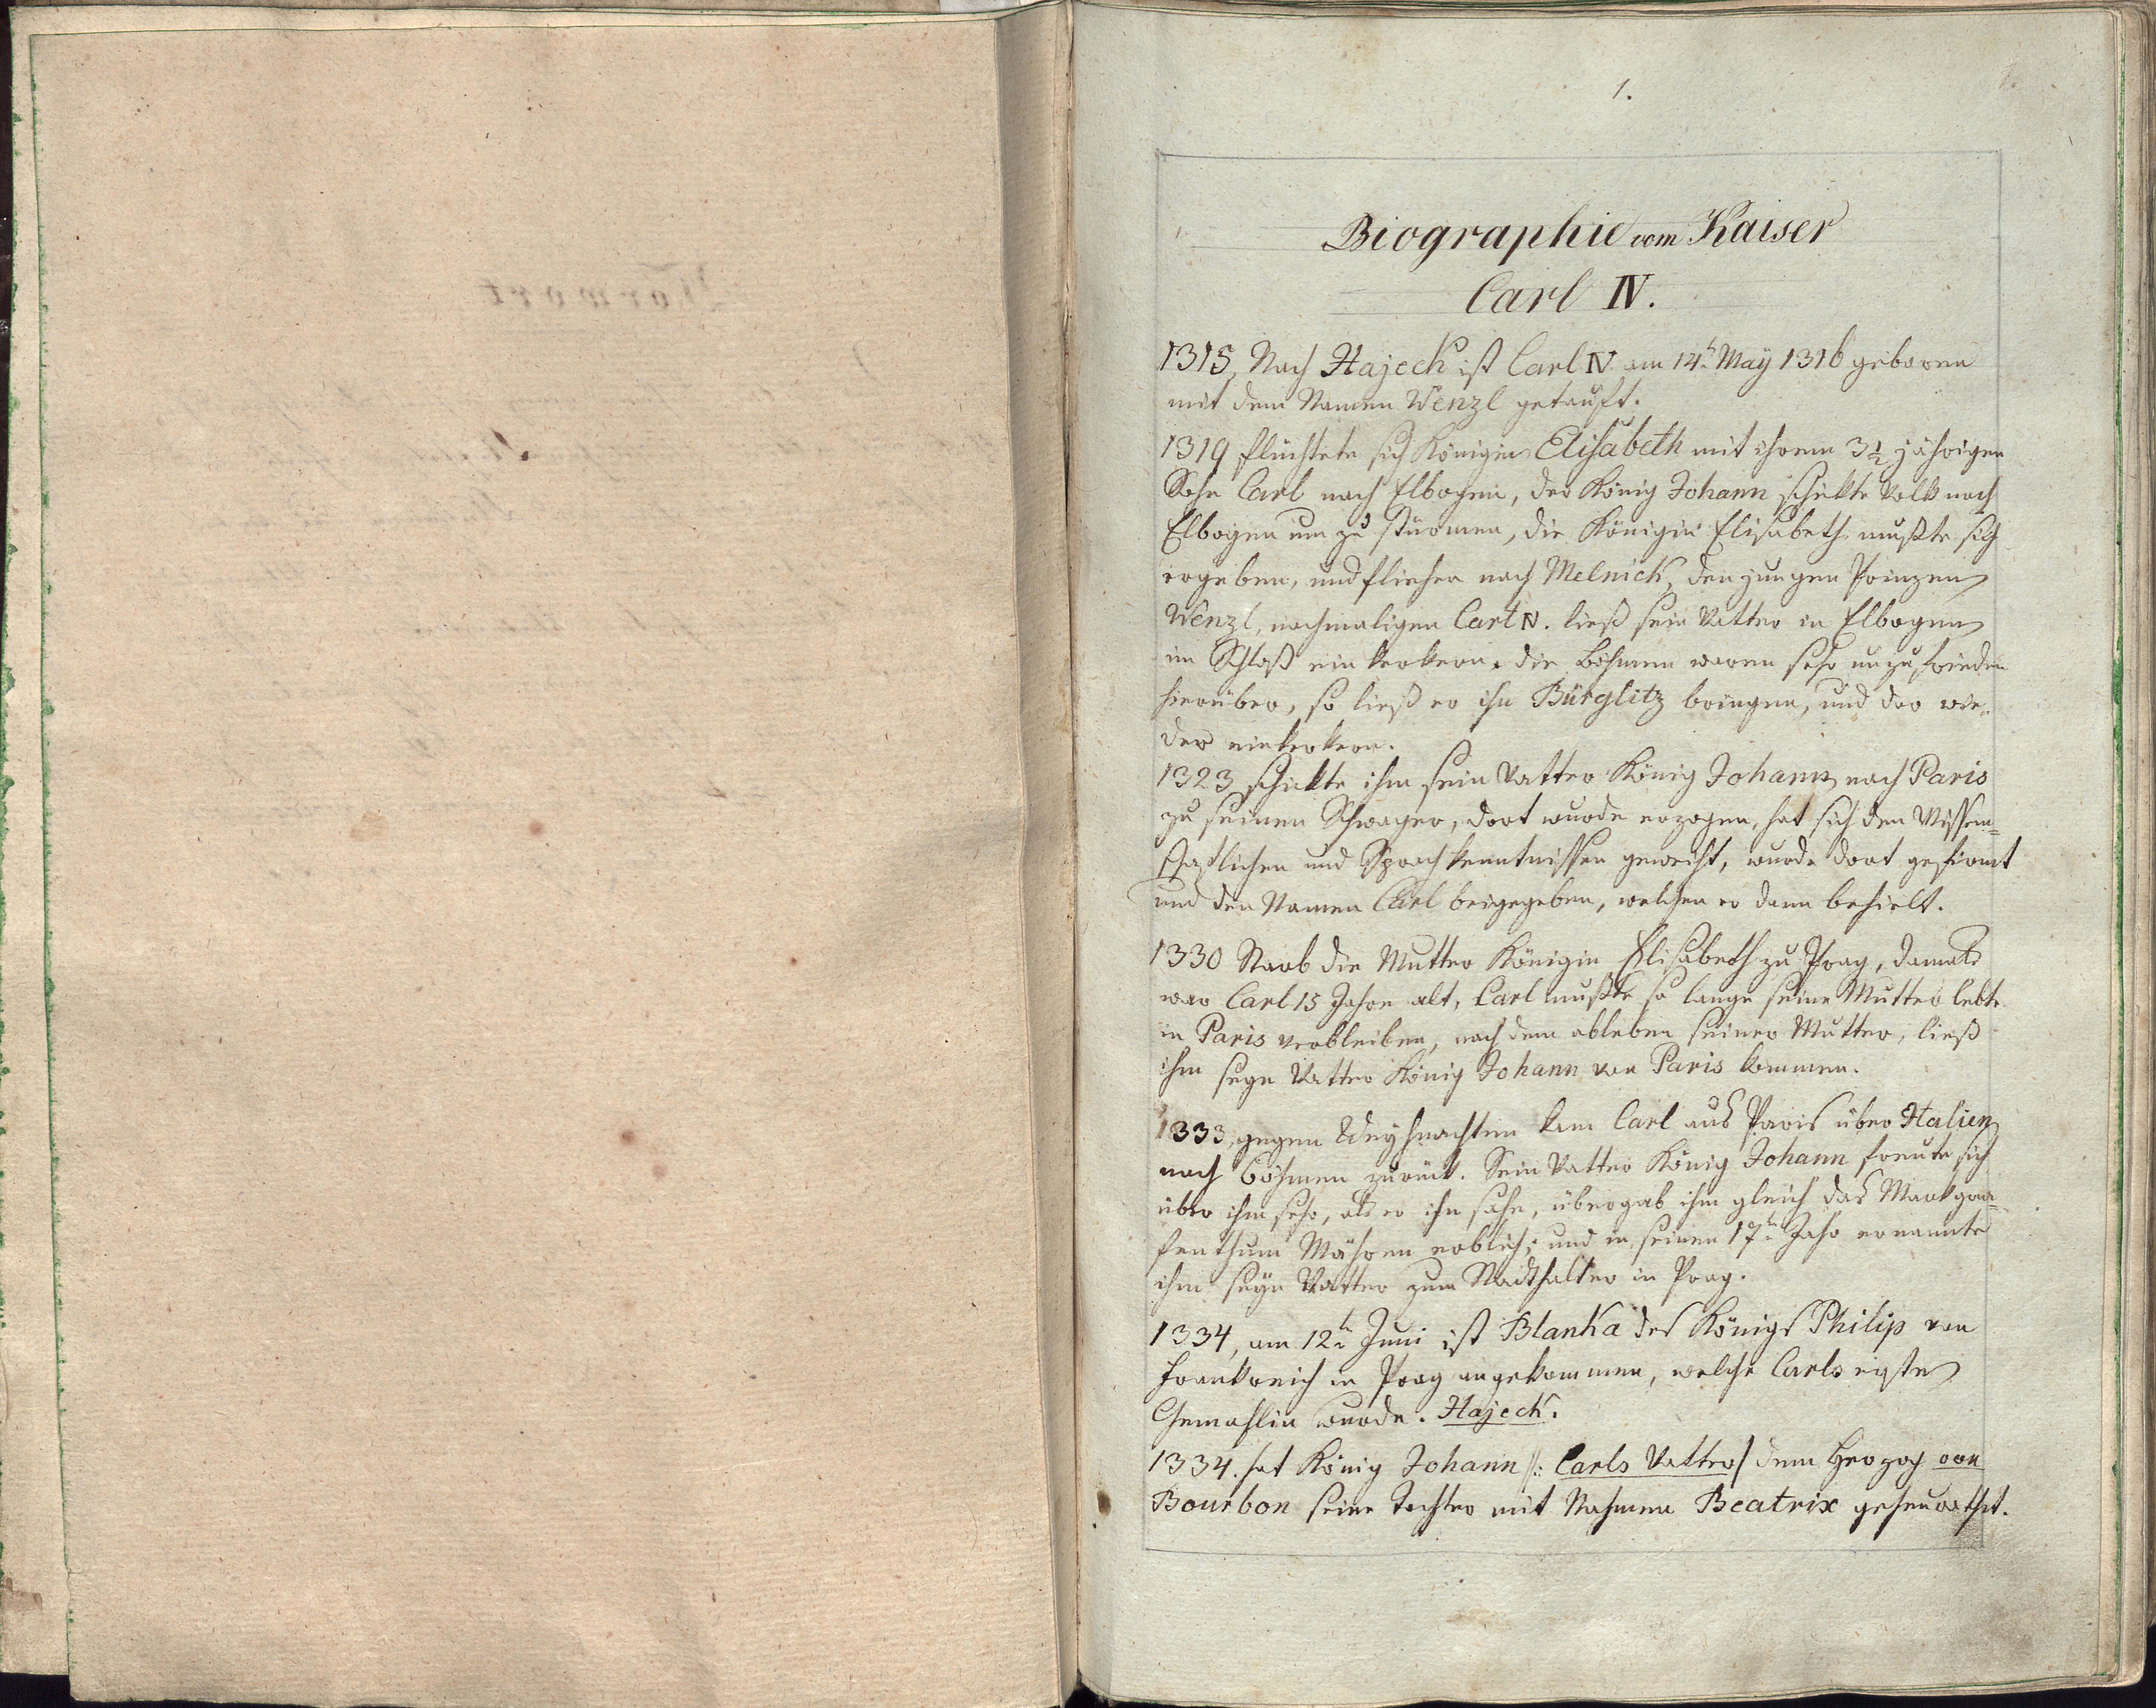 1.
Biographie vom Kaiser
Carl IV.
1315, Nach Hajeck ist Carl IV am 14t. Maÿ 1316 geboren
mit dem Namen Wenzl getauft.
1319 flüchtete sich Königin Elisabeth mit ihrem 3 1/2 jährigen
Sohn Carl nach Elbogen, der König Johann schikte Volk nach
Elbogen um zu stürmen, die Königin Elisabeth mußte sich
ergeben, und fliehen nach Melnick, den jungen Prinzen
Wenzl, nachmaligen Carl IV. ließ sein Vatter in Elbogen
im Schloß einkerkern. die Böhmen waren sehr unzufrieden
hierüber, so ließ er ihn Bürglitz bringen, und dor wie-
der einkerkern.
1323 schikte ihm sein Vatter König Johann nach Paris
zu seinen Schwager, dort wurde erzogen, hat sich den Wissen=
schaftlichen und Sprachkenntnissen geweiht, wurde dort gefirmt
und den Namen Carl beigegeben, welchen er dann behielt.
1330 Starb die Mutter Königin Elisabeth zu Prag, damals
war Carl 15 Jahre alt, Carl mußte so lange seine Mutter lebte
in Paris verbleiben, nach dem ableben seiner Mutter, ließ
ihm seyn Vatter König Johann von Paris kommen.
1333, gegen Weyhnachten kam Carl aus Paris über Italien
nach Böhmen zurück. Sein Vatter König Johann freute sich
über ihm sehr, als er ihn sahe, übergab ihm gleich das Markgra=
fenthum Mähren erblich; und in seinen 17t. Jahr ernannte
ihm seyn Vatter zum Stadthalter in Prag.
1334, am 12t. Juni ist Blanka des Königs Philip von
Frankreich in Prag angekommen, welche Carls erste
Gemahlin wurde. Hajeck.
1334. hat König Johann /: Carls Vatter/ dem Herzog von
Bourbon seine Tochter mit Nahmen Beatrix geheurathet.